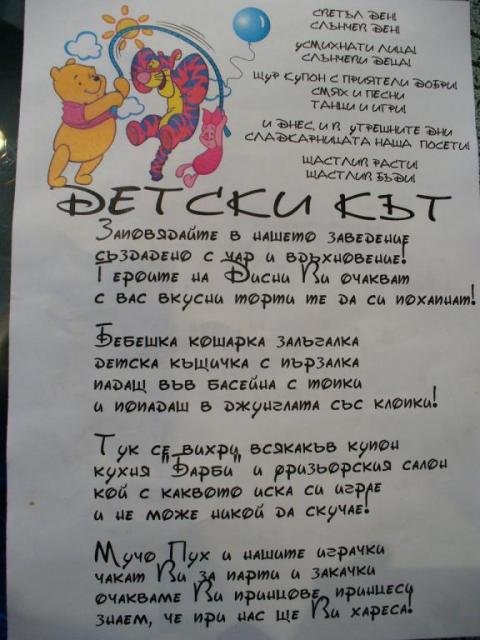 СВЕТЪЛ ДЕН!
СЛЪНЧЕВ ДЕН!
УСМИХНАТИ ЛИЦА!
СЛЪНЧЕВИ ДЕЦА!
ЩУР КУПОН С ПРИЯТЕЛИ ДОБРИ!
СМЯХ И ПЕСНИ
ТАНЦИ И ИГРИ!
И ДНЕС, И В УТРЕШНИТЕ ДНИ
СЛАДКАРНИЦАТА НАША ПОСЕТИ!
ЩАСТЛИВ РАСТИ!
ЩАСТЛИВ БЪДИ!
ДЕТСКИ КЪТ
Заповядайте в нашето заведение
създадено с чар и вдъхновение!
Героите на Дисни Ви очакват
с вас вкусни торти те да си похапнат!
Бебешка кошарка залъгалка
детска къщичка с пързалка
падаш във басейна с топки
и попадаш в джунглата със клопки!
Тук се вихри всякакъв купон
кухня "Барби" и фризьорския салон
кой с каквото иска си играе
и не може никой да скучае!
Мучо Пух и нашите играчки
чакат Ви за парти и закачки
очакваме Ви принцове, принцеси
знаем, че при нас ще Ви хареса!